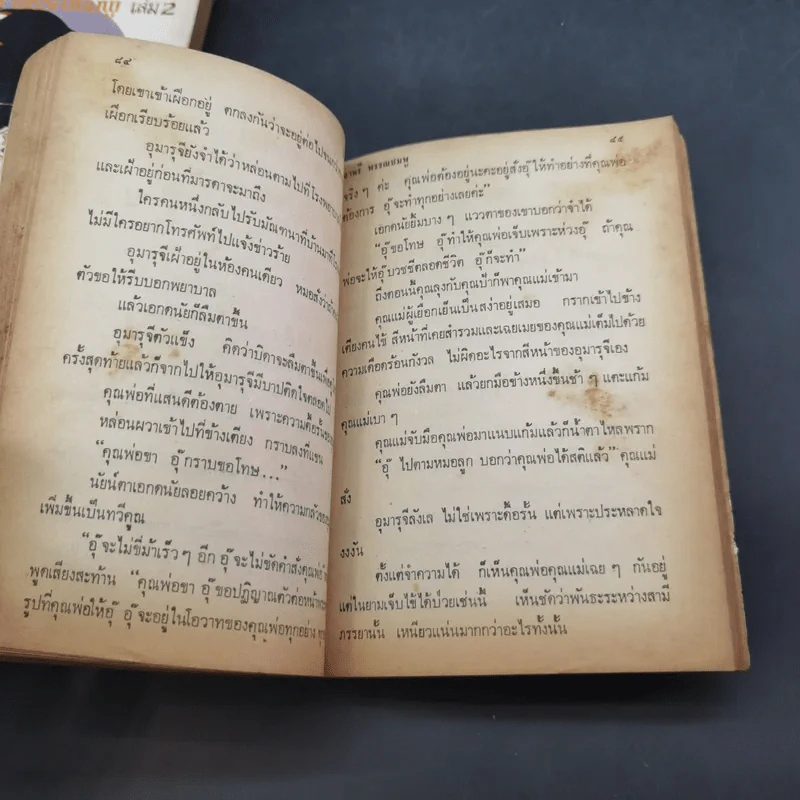 เล่ม 2
๘๔
โดยเขาเข้าเผือกอยู่ ตกลงกันว่าจะอยู่ต่อไปจนกว่า
เผือกเรียบร้อยแล้ว
อุมารุจียังจำได้ว่าหล่อนตามไปที่โรงพยาบาล
และเฝ้าอยู่ก่อนที่มารดาจะมาถึง
ใครคนหนึ่งกลับไปรับมัณฑนาที่บ้านมาที่
ไม่มีใครอยากโทรศัพท์ไปแจ้งข่าวร้าย
อุมารุจีเฝ้าอยู่ในห้องคนเดียว หมอสั่งว่า
ตัวขอให้รีบบอกพยาบาล
แล้วเอกดนัยก็ลืมตาขึ้น
อุมารุจีตัวแข็ง คิดว่าบิดาจะลืมตาขึ้นเพื่อ
ครั้งสุดท้ายแล้วก็จากไปให้อุมารุจีมีบาปติดใจตลอดไป
คุณพ่อที่แสนดีต้องตาย เพราะความดื้อรั้นของ
หล่อนผวาเข้าไปที่ข้างเตียง กราบลงที่แขน
“คุณพ่อขา อุ๊กราบขอโทษ...”
นัยน์ตาเอกดนัยลอยคว้าง ทำให้ความกลัวของ
เพิ่มขึ้นเป็นทวีคูณ
“อุ๊จะไม่ขี่ม้าเร็ว ๆ อีก อุ๊จะไม่ขัดคำสั่งคุณพ่อ
พูดเสียงสะท้าน “คุณพ่อขา อุ๊ขอปฏิญาณตัวต่อหน้า
รูปที่คุณพ่อให้อุ๊ อุ๊จะอยู่ในโอวาทของคุณพ่อทุกอย่าง
พรรณชมพู
๘๕
จริง ๆ ค่ะ คุณพ่อต้องอยู่นะคะอยู่สั่งอุ๊ ให้ทำอย่างที่คุณพ่อ
ต้องการ อุ๊จะทำทุกอย่างเลยค่ะ”
เอกดนัยยิ้มบาง ๆ แววตาของเขาบอกว่าจำได้
“อุ๊ขอโทษ อุ๊ทำให้คุณพ่อเจ็บเพราะห่วงอุ๊ ถ้าคุณ
พ่อจะให้อุ๊บวชชีตลอดชีวิต อุ๊ก็จะทำ”
ถึงตอนนี้คุณลุงกับคุณป้าก็พาคุณแม่เข้ามา
คุณแม่ผู้เยือกเย็นเป็นสง่าอยู่เสมอ กรากเข้าไปข้าง
เตียงคนไข้ สีหน้าที่เคยสำรวมและเฉยเมยของคุณแม่เต็มไปด้วย
ความเดือดร้อนกังวล ไม่ผิดอะไรจากสีหน้าของอุมารุจีเอง
คุณพ่อยังลืมตา แล้วยกมือข้างหนึ่งขึ้นช้า ๆ แตะแก้ม
คุณแม่เบา ๆ
คุณแม่จับมือคุณพ่อมาแนบแก้มแล้วก็น้ำตาไหลพราก
“อุ๊ ไปตามหมอลูก บอกว่าคุณพ่อได้สติแล้ว” คุณแม่
สั่ง
อุมารุจีลังเล ไม่ใช่เพราะดื้อรั้น แต่เพราะประหลาดใจ
งงงัน
ตั้งแต่จำความได้ ก็เห็นคุณพ่อคุณแม่เฉย ๆ กันอยู่
แต่ในยามเจ็บไข้ได้ป่วยเช่นนี้ เห็นชัดว่าพันธะระหว่างสามี
ภรรยานั้น เหนียวแน่นมากกว่าอะไรทั้งนั้น